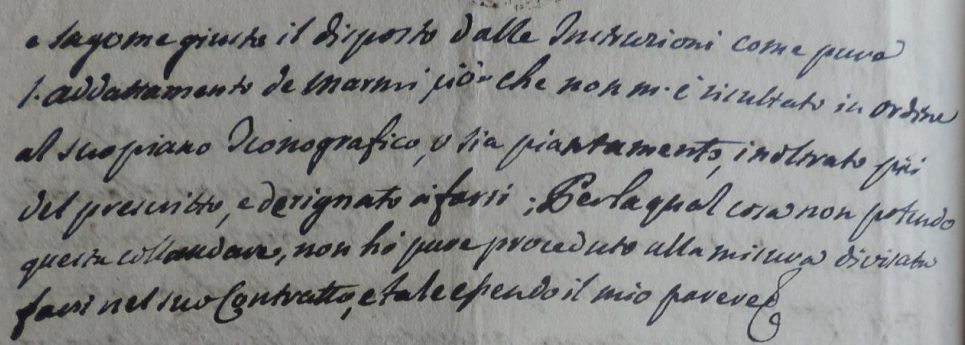 e sagome giusta il disposto dalle Instruzioni come pure
l'addattamento de marmi, ciò che non m'è risultato in ordine
al suo piano Iconografico, o sia piantamento, inoltrato più
del prescritto, e designato a farsi; Per la qual cosa non potendo
questa collaudare, non hò pure proceduto alla misura divisata
farsi nel suo Contratto, e tale essendo il mio parere